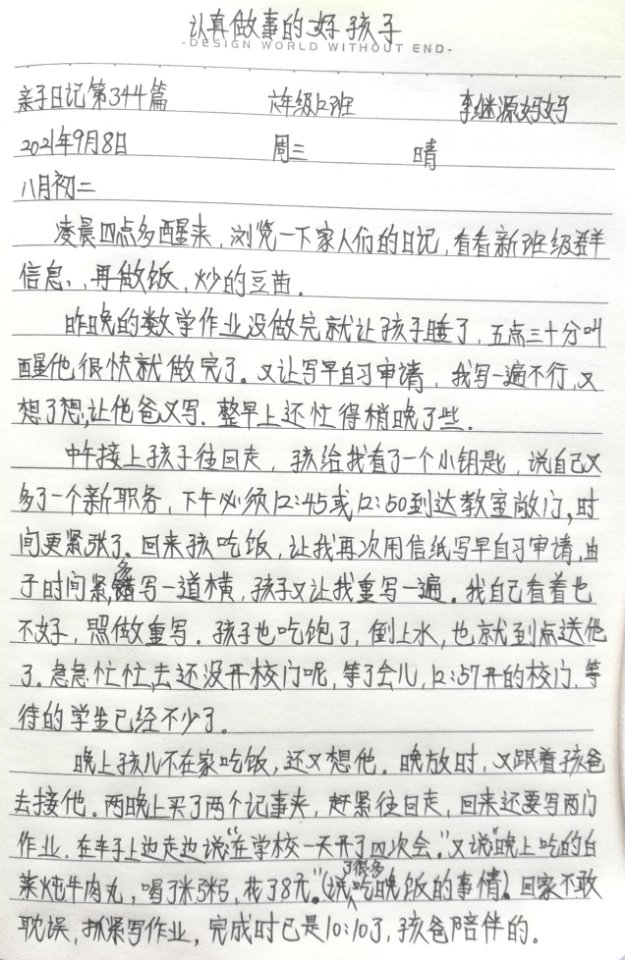 认真做事的好孩子
-DESIGN WORLD WITHOUT END-
亲子日记第344篇 六年级12班 李继源妈妈
2021年9月8日 周三 晴
八月初二
凌晨四点多醒来，浏览一下家人们的日记，看看新班级群
信息，再做饭，炒的豆苗.
昨晚的数学作业没做完就让孩子睡了，五点三十分叫
醒他很快就做完了。又让写早自习申请，我写一遍不行，又
想了想,让他爸又写.整早上还忙得稍晚了些.
中午接上孩子往回走，孩给我看了一个小钥匙，说自己又
多了一个新职务，下午必须12:45或12:50到达教室敞门,时
间更紧张了。回来孩吃饭，让我再次用信纸写早自习申请,由
于时间紧,多写一道横，孩子又让我重写一遍。我自己看着也
不好，照做重写.孩子也吃饱了，倒上水，也就到点送他
了.急急忙忙,去还没开校门呢，等了会儿,12:57开的校门.等
待的学生已经不少了。
晚上孩儿不在家吃饭,还又想他.晚放时，又跟着孩爸
去接他.两晚上买了两个记事夹，赶紧往目走，回来还要写两门
作业.在车子上边走边说“在学校一天开了四次会.”又说“晚上吃的白
菜炖牛肉丸，喝了米粥，花了8元.”(说了很多吃晚饭的事情).回家不敢
耽误,抓紧写作业，完成时已是10:10了,孩爸陪伴的。